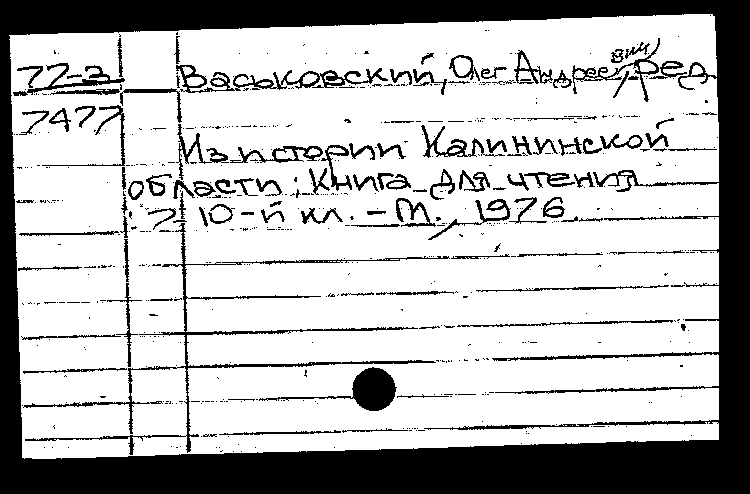 77-3 Васьковский, Олег Андреевич, ред.
7477
Из истории Калининской
области: Книга для чтения
7-10-й кл. - М., 1976.